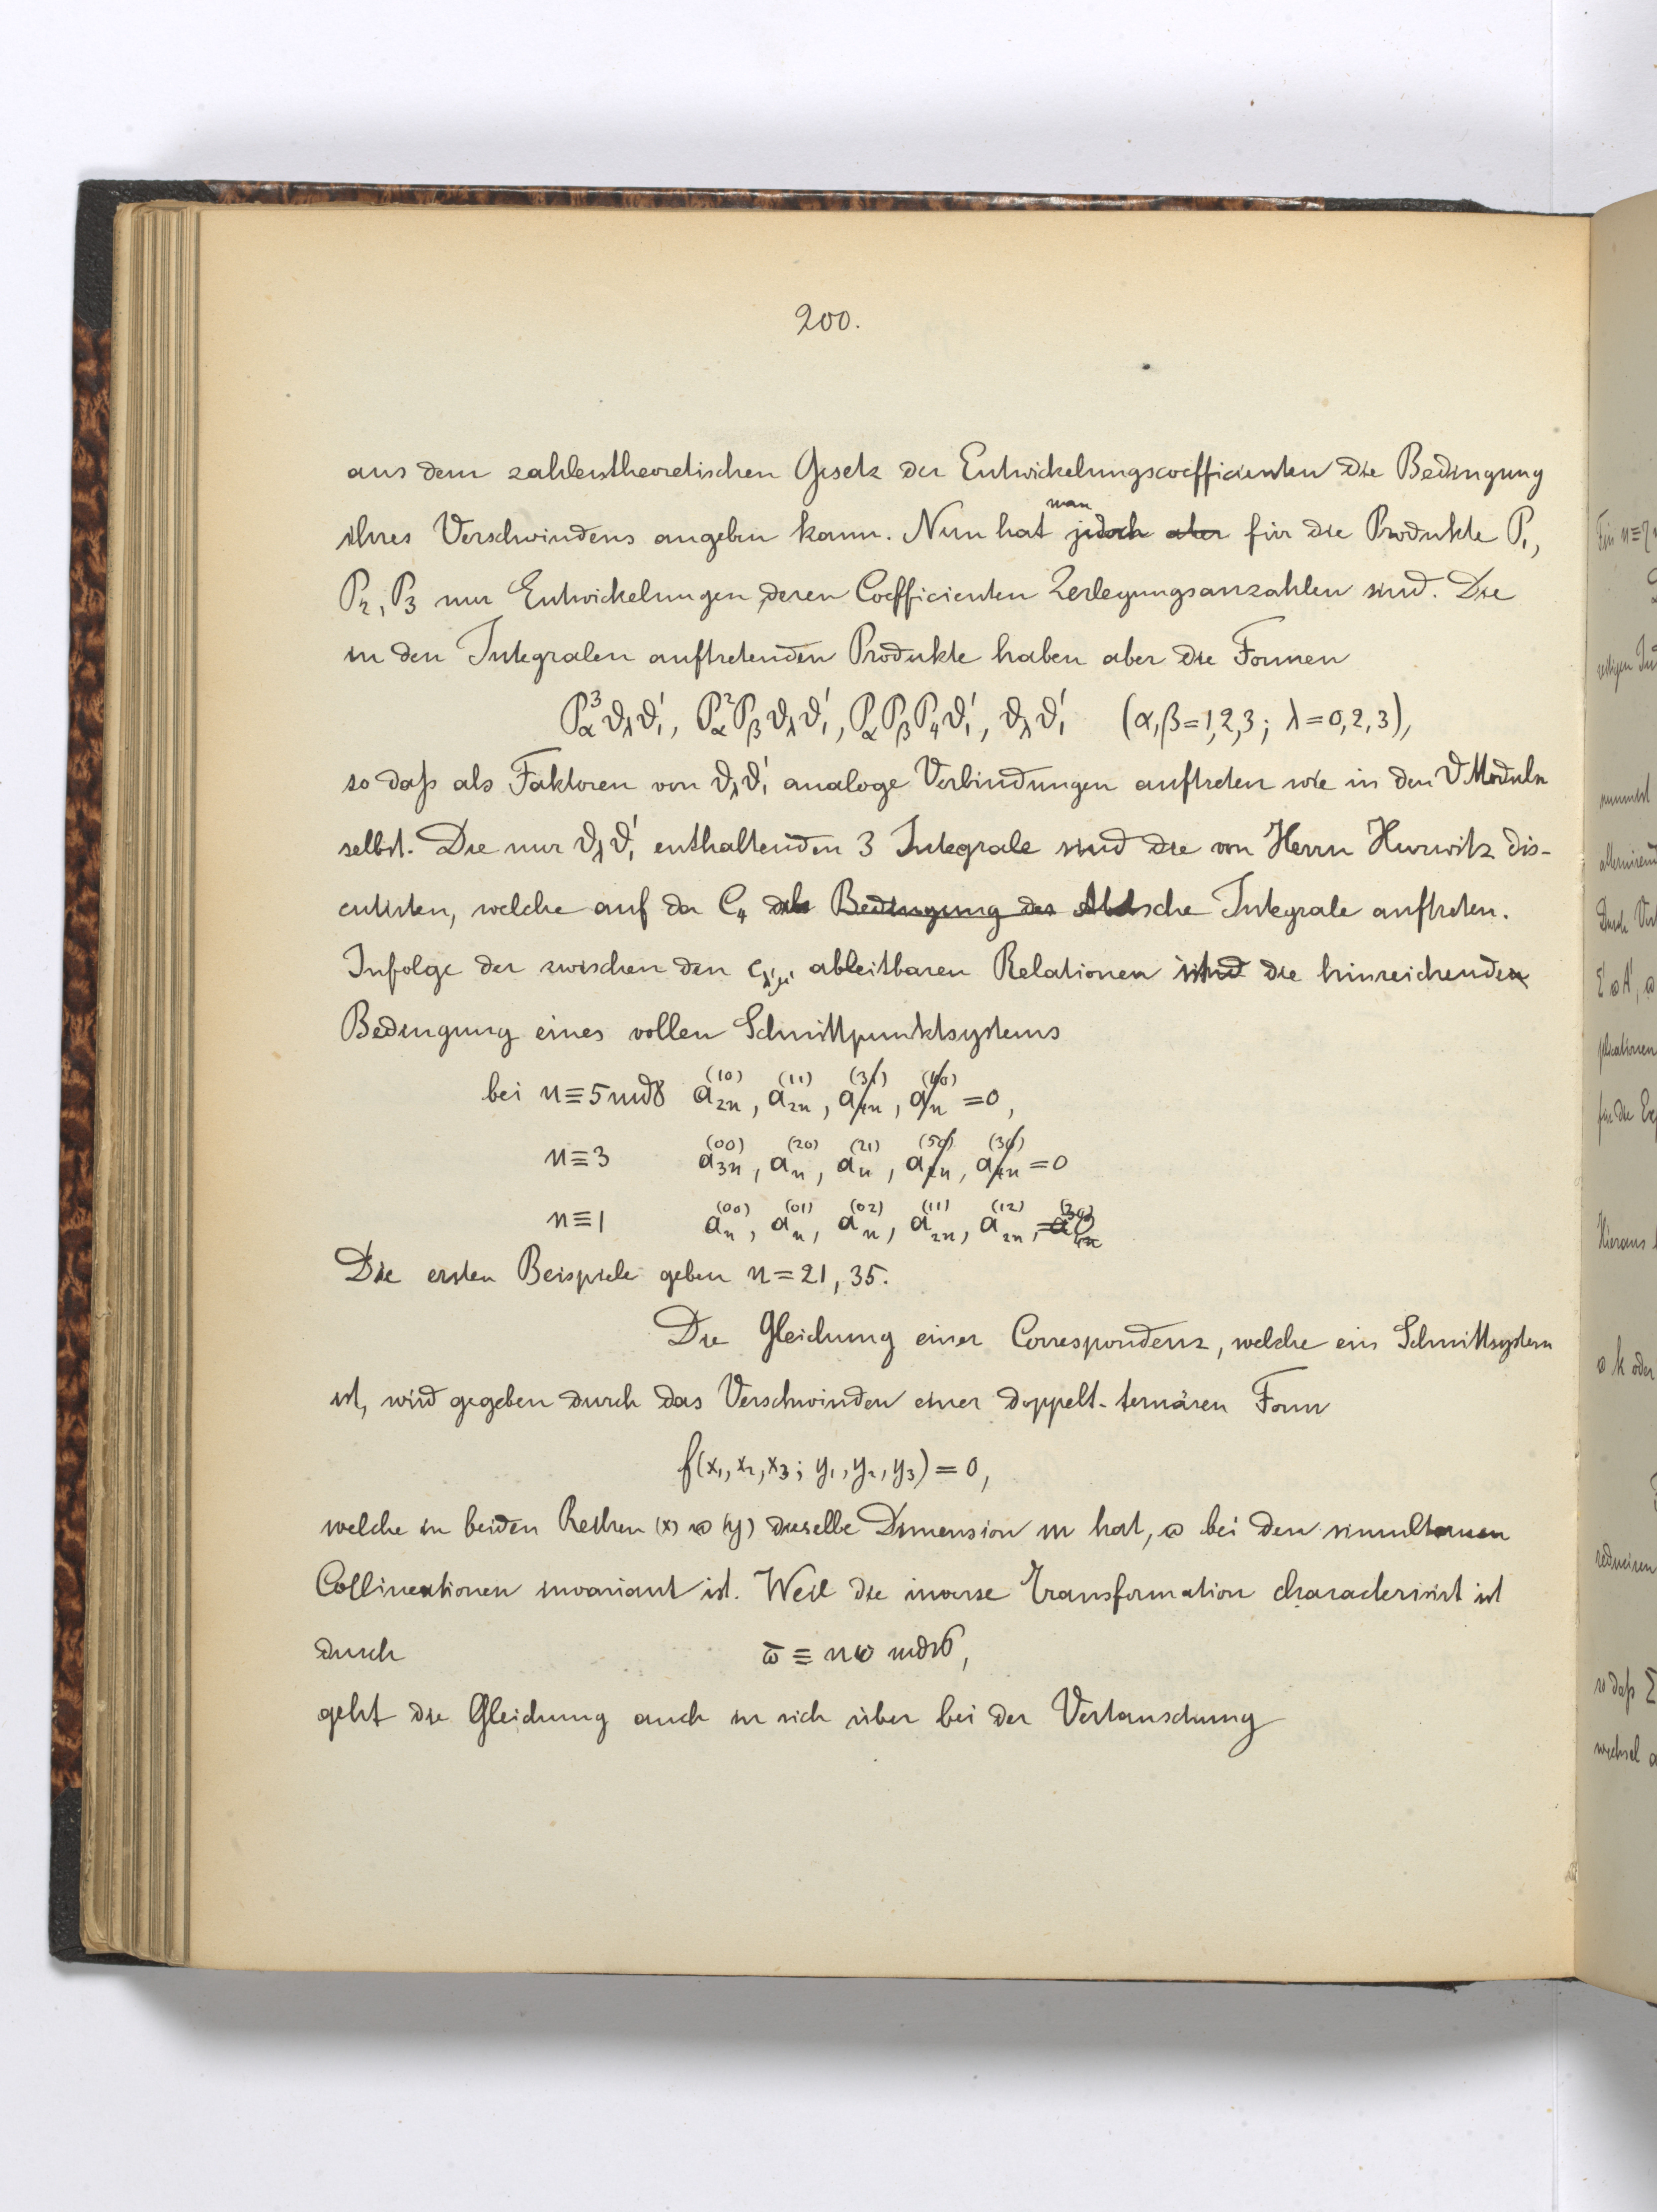 200.
aus dem zahlentheoretischen Gesetz der Entwickelungscoefficienten die Bedingung
man
ihres Verschwindens angeben kann. Nun hat jedoch aber für die Produkte P₁,
P₂, P₃ nur Entwickelungen, deren Coefficienten Zerlegungsanzahlen sind. Die
in den Integralen auftretenden Produkte haben aber die Formen
P_α³ϑ_λϑ₁', P_α²P_βϑ_λϑ₁', P_αP_βP₄ϑ₁', ϑ_λϑ₁' (α,β=1,2,3; λ=0,2,3),
so daß als Faktoren von ϑ_λϑ₁' analoge Verbindungen auftreten wie in den ϑModuln
selbst. Die nur ϑ_λϑ₁' enthaltenden 3 Integrale sind die von Herrn Hurwitz dis-
cutirten, welche auf der C₄ als Bedingung des Abelsche Integrale auftreten.
Infolge der zwischen den ableitbaren Relationen sind die hinreichenden
Bedingung eines vollen Schnittpunktsystems
bei n≡5 mod 8 a₂ₙ⁽¹⁰⁾, a₂ₙ⁽¹¹⁾, a₄ₙ⁽³¹⁾, aₙ⁽⁴⁰⁾ =0,
n≡3 a₃ₙ⁽⁰⁰⁾, aₙ⁽²⁰⁾, aₙ⁽²¹⁾, a₂ₙ⁽⁵⁰⁾, a₄ₙ⁽³⁰⁾ =0
n≡1 aₙ⁽⁰⁰⁾, aₙ⁽⁰¹⁾, aₙ⁽⁰²⁾, a₂ₙ⁽¹¹⁾, a₂ₙ⁽¹²⁾, =0
Die ersten Beispiele geben n=21, 35.
Die Gleichung einer Correspondenz, welche ein Schnittsystem
ist, wird gegeben durch das Verschwinden einer doppelt-ternären Form
f(x₁,x₂,x₃; y₁,y₂,y₃)=0,
welche in beiden Reihen (x) & (y) dieselbe Dimension m hat, & bei den simultanen
Collineationen invariant ist. Weil die inverse Transformation characterisirt ist
durch ω̄ ≡ nω mod 16,
geht die Gleichung auch in sich über bei der Vertauschung